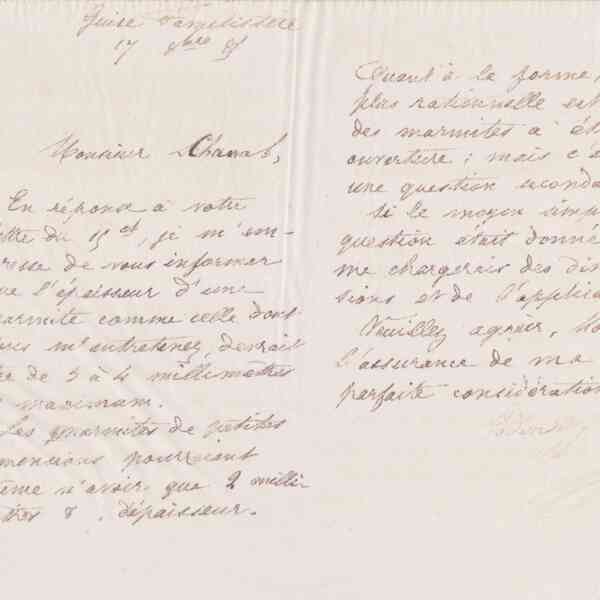 17 8bre
Monsieur Chanal,
En réponse à votre
ttre du 15 ct, je m'em-
resse de vous informer
ue l'épaisseur d'une
armite comme celle dont
ous m'entretenez, devrait
re de 3 à 4 millimètres
maximum.
Les marmites de petites
mensions pourraient
ême n'avoir que 2 milli
tres d'épaisseur.
Quant à la forme,
plus rationnelle est
des marmites à ét
ouverture ; mais c'e
une question seconda
si le moyen simp
question était donné
me chargerais des di
sions et de l'applica
Veuillez agréer, Mo
l'assurance de ma
parfaite considération